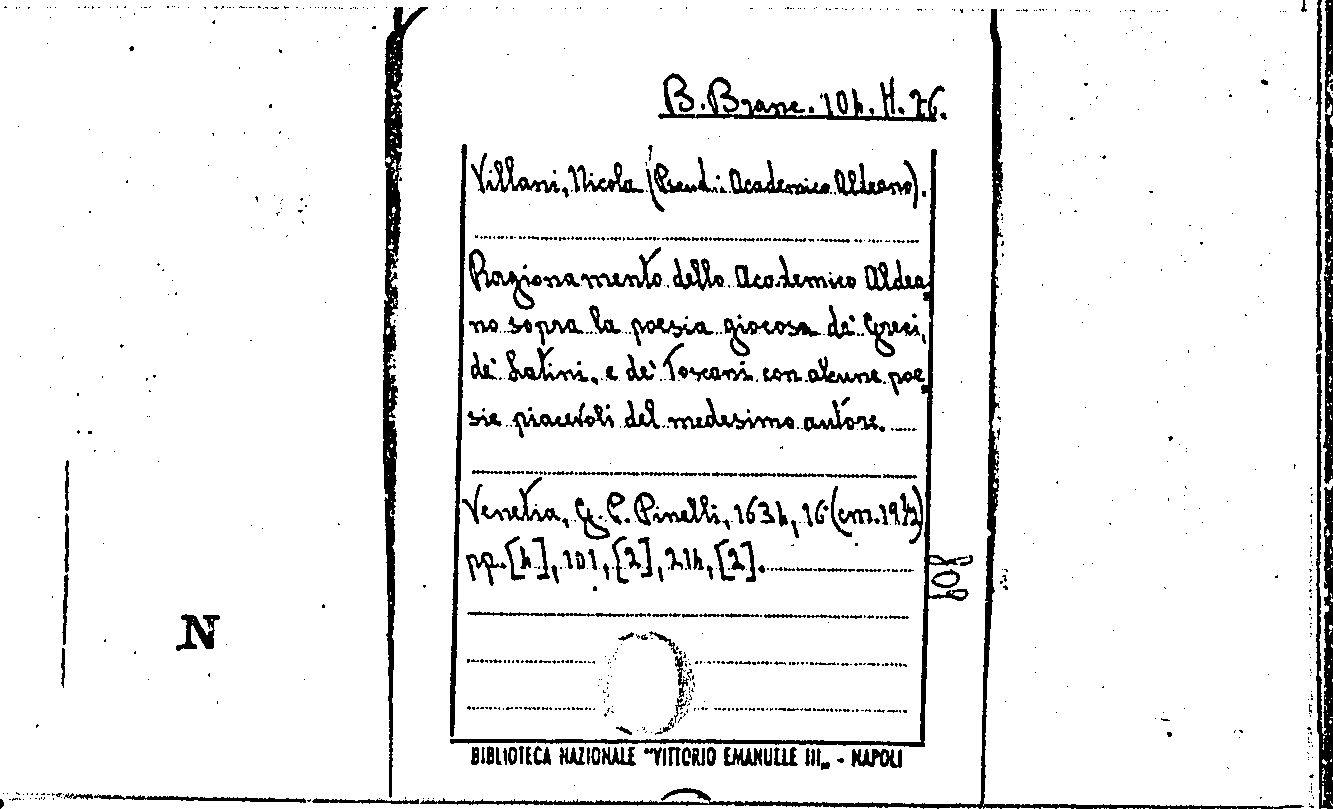 B. Branc. 104. H. 26.
Villani, Nicola (Pseud.: Academico Aldeano).
Ragionamento dello Academico Aldea-
no sopra la poesia giocosa de' Greci,
de' Latini, e de' Toscani con alcune poe-
sie piacevoli del medesimo autore.
Venetia, G. P. Pinelli, 1634, 16 (cm. 19½)
pp. [4], 101, [2], 214, [2].
N
BIBLIOTECA NAZIONALE "VITTORIO EMANUELE III„ - NAPOLI